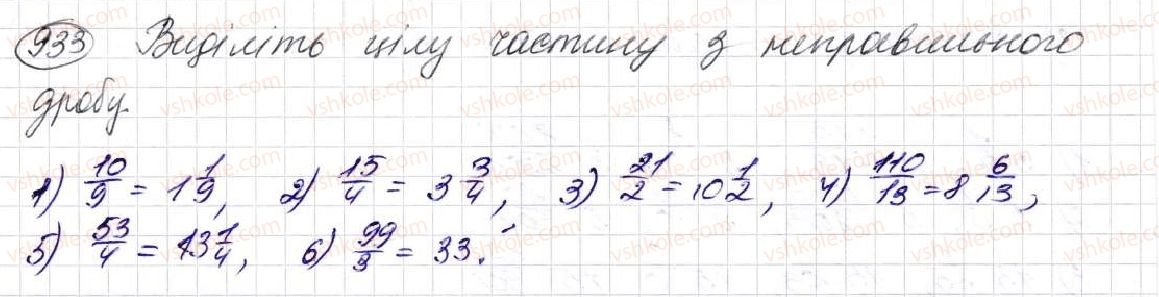 933 Виділіть цілу частину з неправильного
дробу.
1) 10/9 = 1 1/9, 2) 15/4 = 3 3/4, 3) 21/2 = 10 1/2, 4) 110/13 = 8 6/13,
5) 53/4 = 13 1/4, 6) 99/3 = 33.